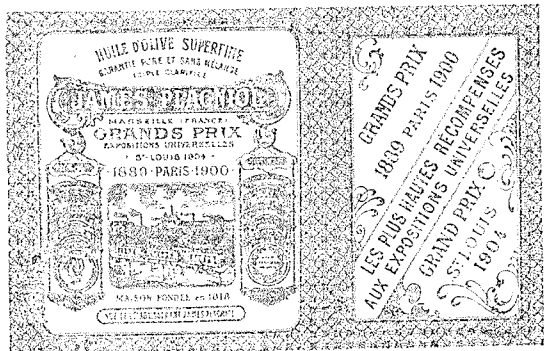 HUILE D'OLIVE SUPERFINE
GARANTIE PURE ET SANS MÉLANGE
TRIPLE CLARIFIÉE
JAMES PLAGNIOL
MARSEILLE (FRANCE)
GRANDS PRIX
EXPOSITIONS UNIVERSELLES
ST LOUIS 1904
1889 · PARIS · 1900
MAISON FONDÉE en 1818
GRANDS PRIX
1889 PARIS 1900
LES PLUS HAUTES RÉCOMPENSES
AUX EXPOSITIONS UNIVERSELLES
GRAND PRIX
ST LOUIS
1904